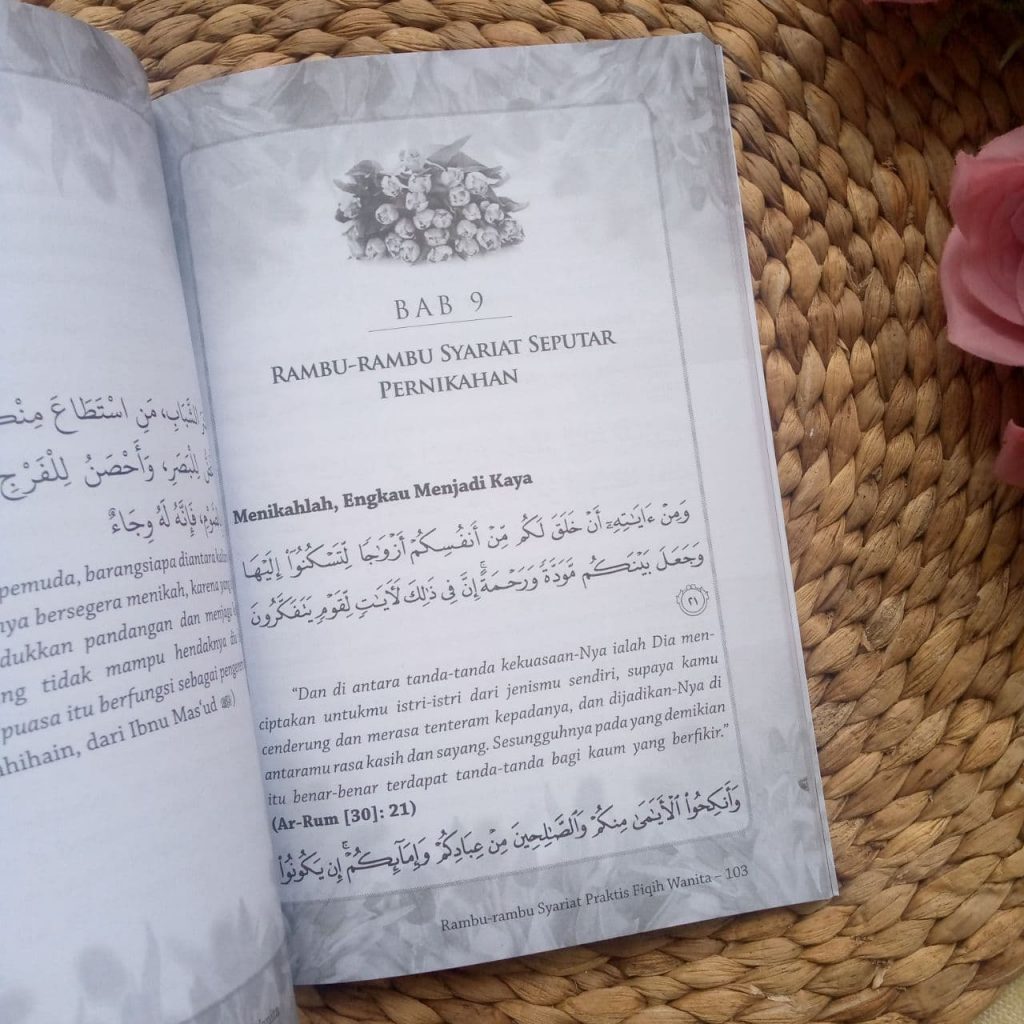 الشَّبَابِ، مَنِ اسْتَطَاعَ
لِلْبَصَرِ، وَأَحْصَنُ لِلْفَرْجِ
فَإِنَّهُ لَهُ وِجَاءٌ
pemuda, barangsiapa diantara
nya bersegera menikah, karena
dukkan pandangan dan menjaga
ng tidak mampu hendaknya
puasa itu berfungsi sebagai
ahihain, dari Ibnu Mas'ud)
BAB 9
RAMBU-RAMBU SYARIAT SEPUTAR
PERNIKAHAN
Menikahlah, Engkau Menjadi Kaya
وَمِنْ ءَايَٰتِهِۦٓ أَنْ خَلَقَ لَكُم مِّنْ أَنفُسِكُمْ أَزْوَٰجًا لِّتَسْكُنُوٓا۟ إِلَيْهَا
وَجَعَلَ بَيْنَكُم مَّوَدَّةً وَرَحْمَةً ۚ إِنَّ فِى ذَٰلِكَ لَءَايَٰتٍ لِّقَوْمٍ يَتَفَكَّرُونَ
٢١
"Dan di antara tanda-tanda kekuasaan-Nya ialah Dia men-
ciptakan untukmu istri-istri dari jenismu sendiri, supaya kamu
cenderung dan merasa tenteram kepadanya, dan dijadikan-Nya di
antaramu rasa kasih dan sayang. Sesungguhnya pada yang demikian
itu benar-benar terdapat tanda-tanda bagi kaum yang berfikir."
(Ar-Rum [30]: 21)
وَأَنكِحُوا۟ ٱلْأَيَٰمَىٰ مِنكُمْ وَٱلصَّٰلِحِينَ مِنْ عِبَادِكُمْ وَإِمَآئِكُمْ ۚ إِن يَكُونُوا۟
Rambu-rambu Syariat Praktis Fiqih Wanita – 103